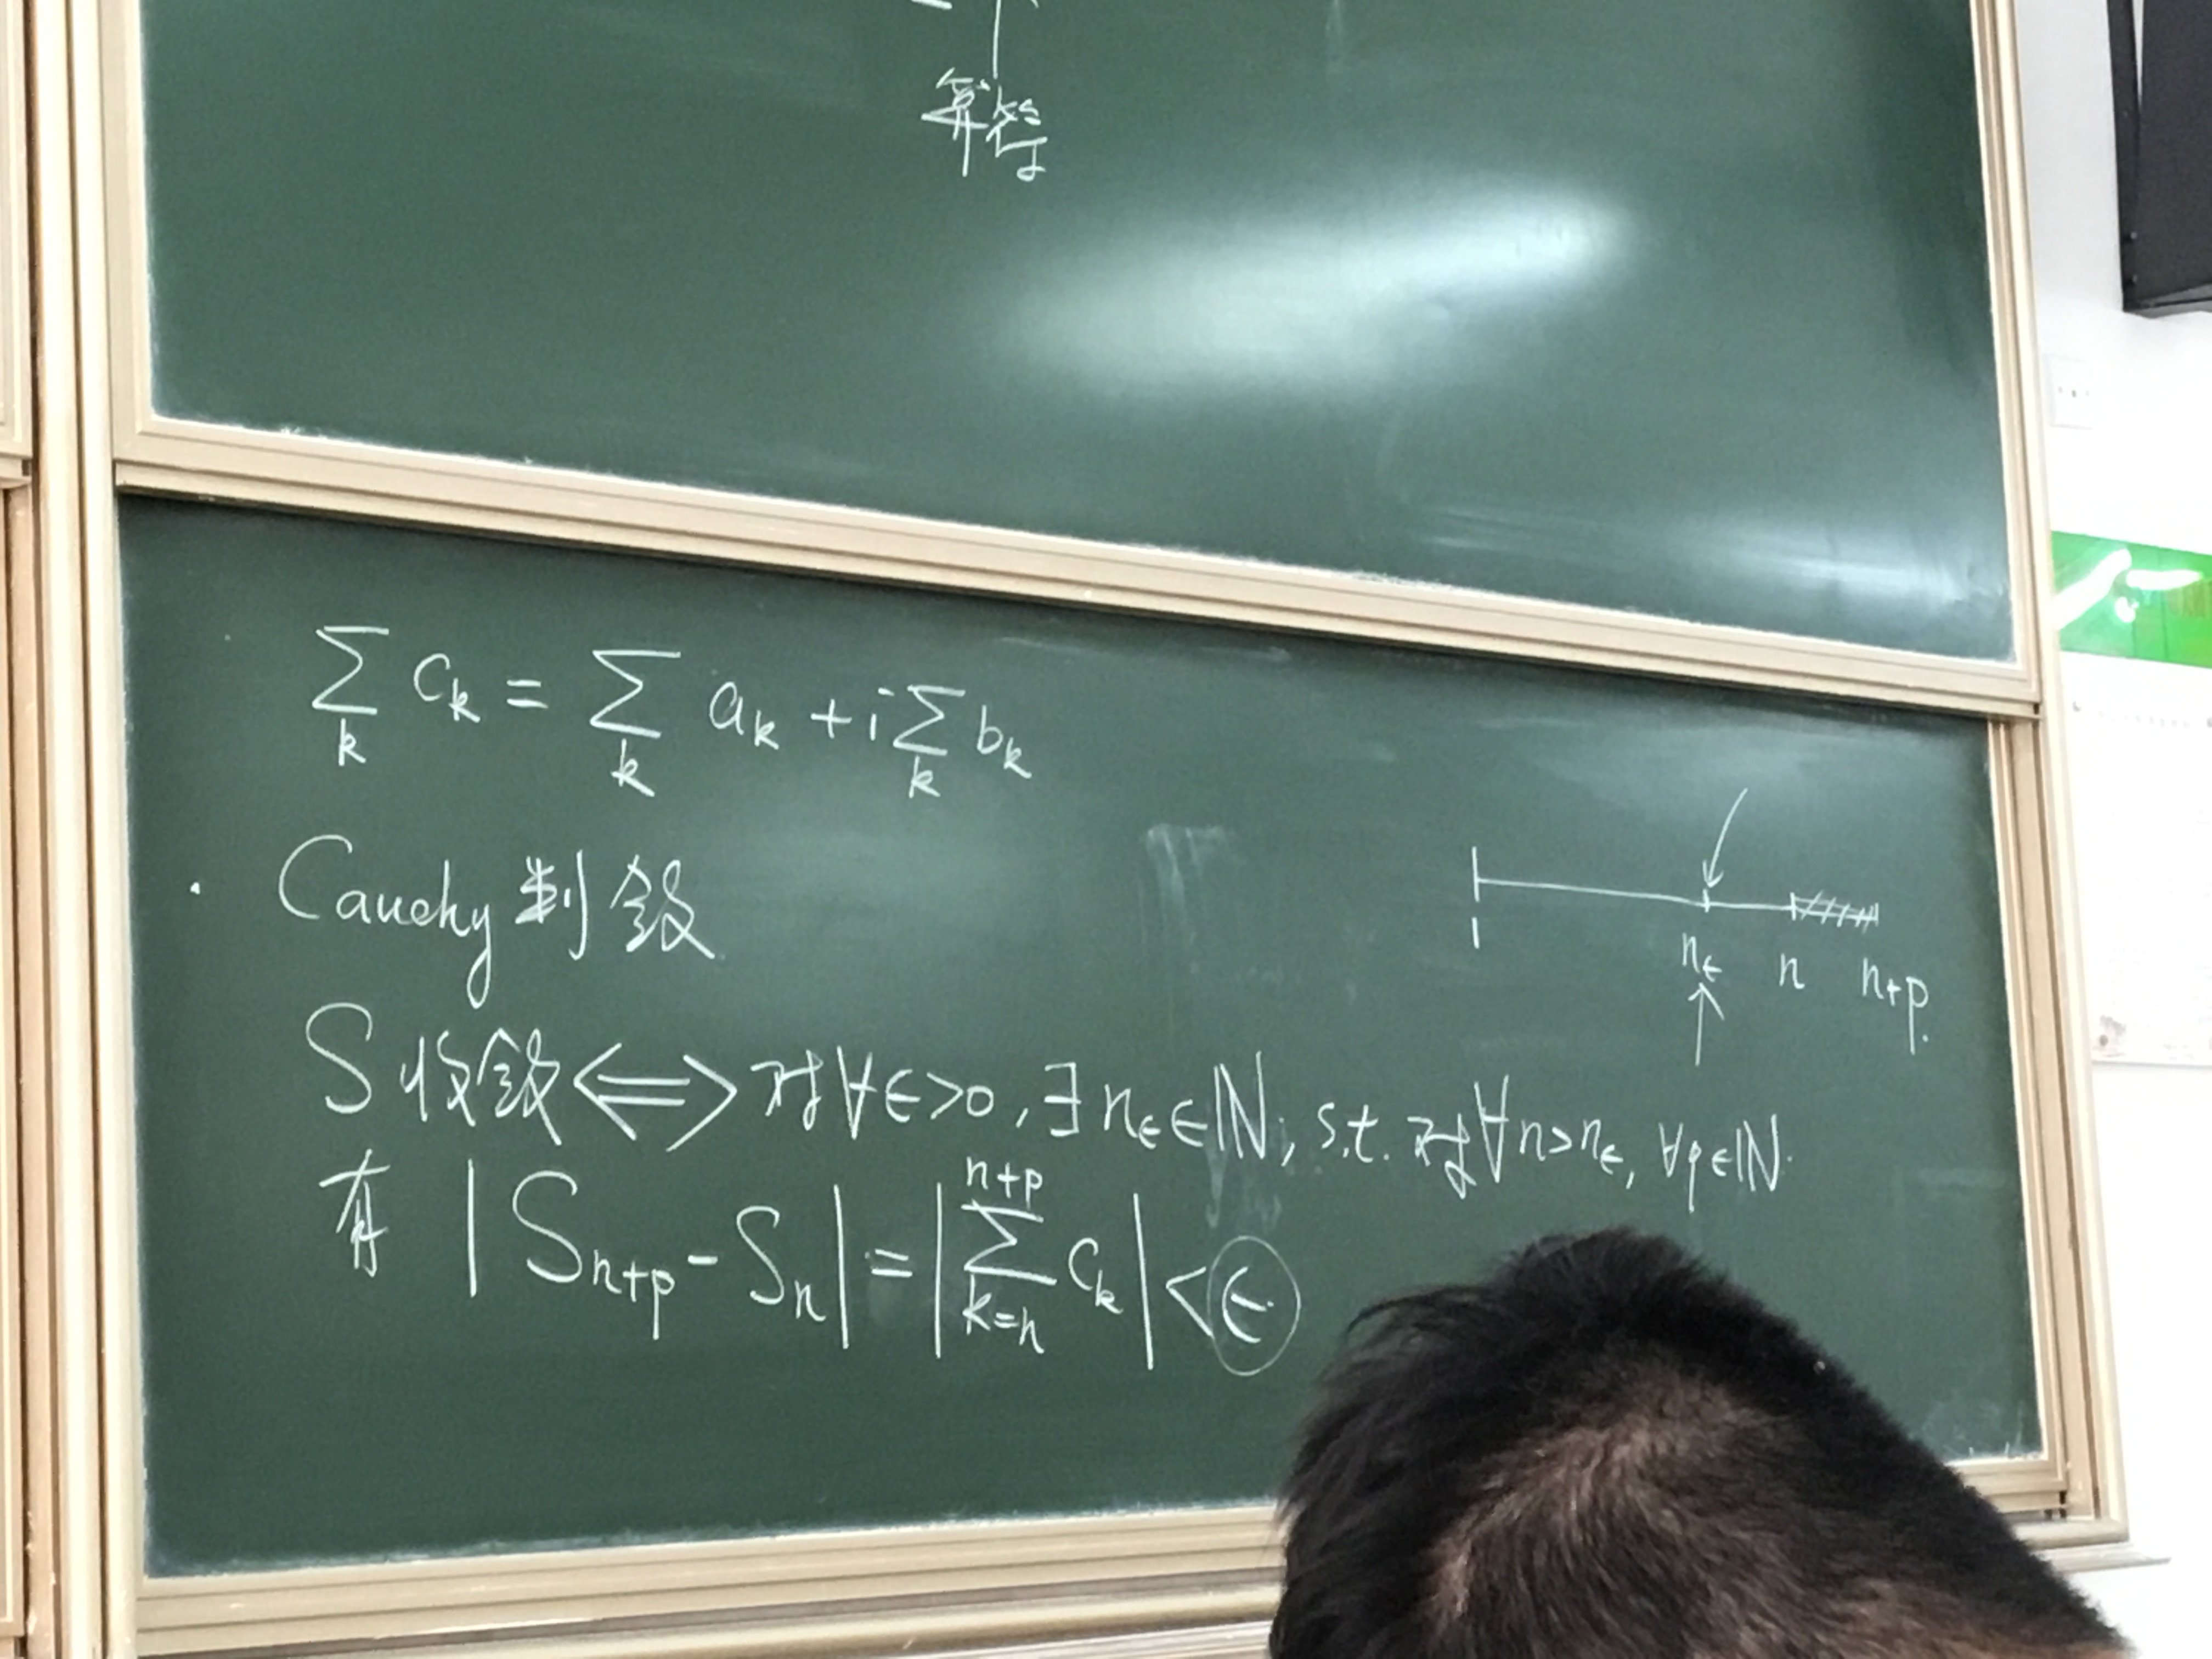 算符
∑_k c_k = ∑_k a_k + i∑_k b_k
· Cauchy 判敛
1 n_ϵ n n+p.
S收敛 ⟺ 对∀ϵ>0, ∃ n_ϵ∈ℕ, s.t. 对∀n>n_ϵ, ∀p∈ℕ.
有 |S_{n+p} - S_n| = |∑_{k=n}^{n+p} c_k| < ϵ